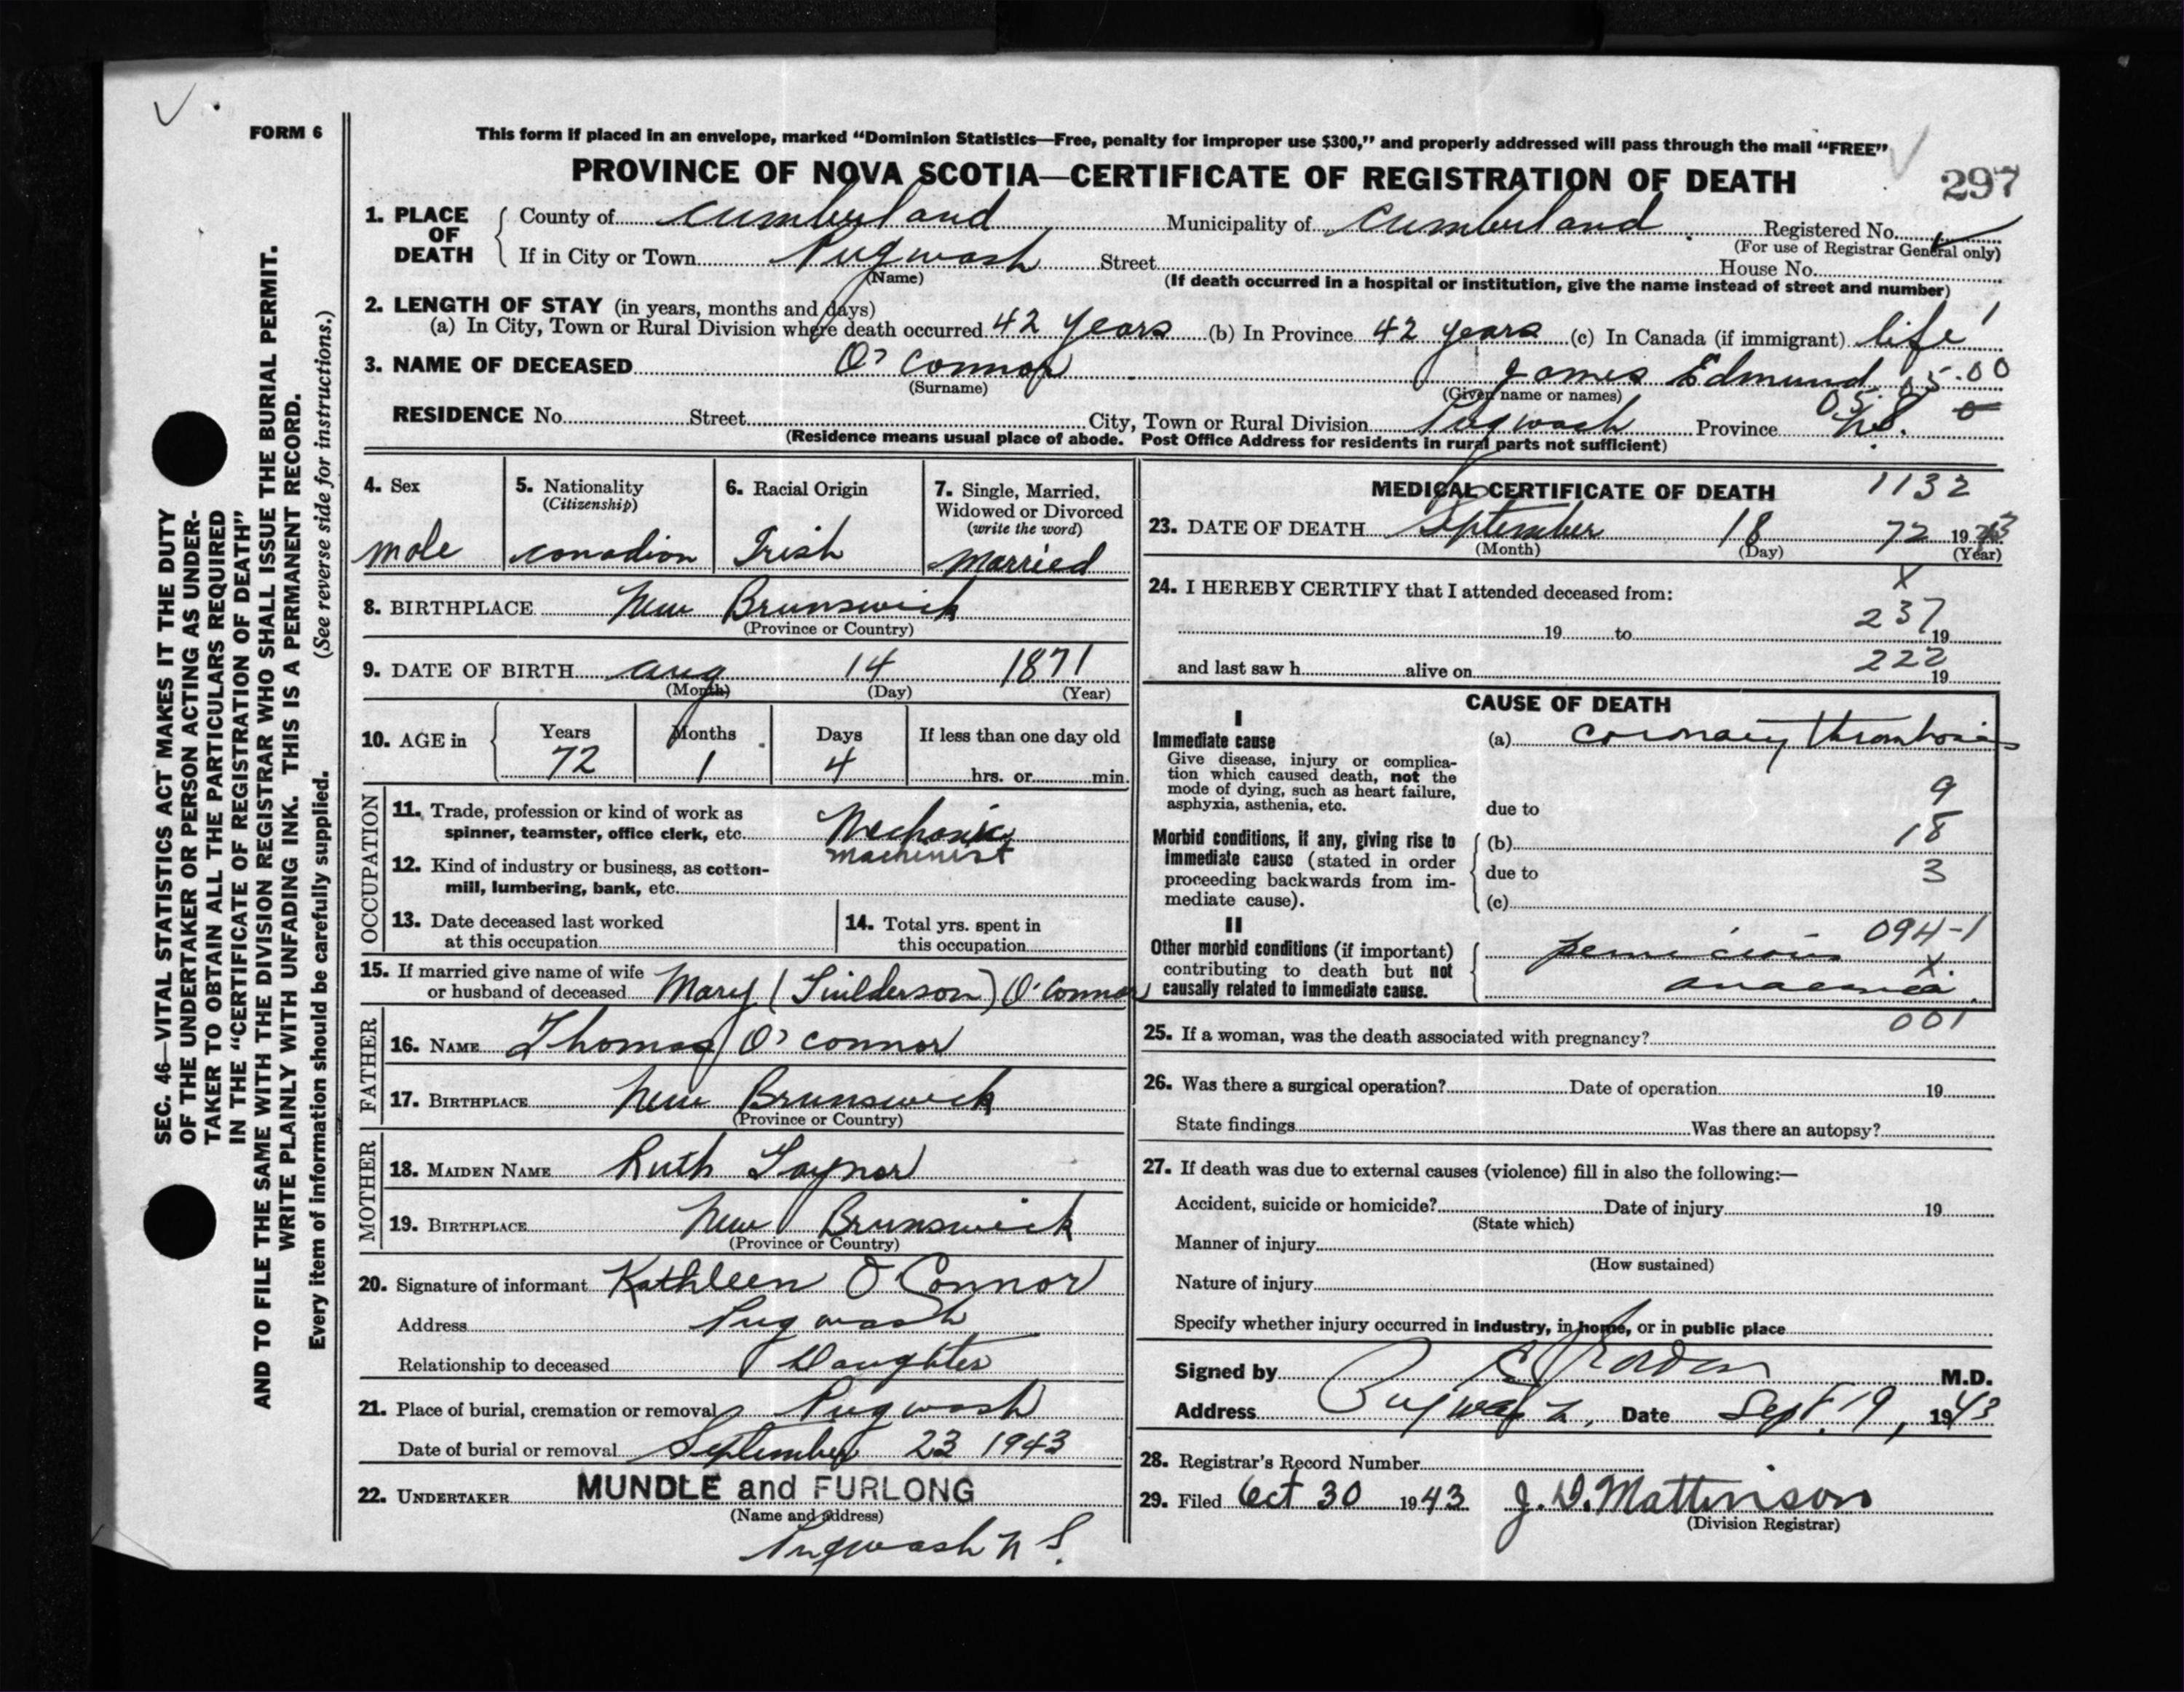 FORM 6
This form if placed in an envelope, marked “Dominion Statistics—Free, penalty for improper use $300,” and properly addressed will pass through the mail “FREE”
PROVINCE OF NOVA SCOTIA—CERTIFICATE OF REGISTRATION OF DEATH
297
1. PLACE OF DEATH
County of Cumberland Municipality of Cumberland Registered No.
(For use of Registrar General only)
If in City or Town Pugwash Street House No.
(Name)
(If death occurred in a hospital or institution, give the name instead of street and number)
2. LENGTH OF STAY (in years, months and days)
(a) In City, Town or Rural Division where death occurred 42 years (b) In Province 42 years (c) In Canada (if immigrant) life
3. NAME OF DECEASED O'Connor James Edmund 05.00
(Surname) (Given name or names)
05. 0
RESIDENCE No. Street City, Town or Rural Division Pugwash Province N.S.
(Residence means usual place of abode. Post Office Address for residents in rural parts not sufficient)
4. Sex
male
5. Nationality
(Citizenship)
Canadian
6. Racial Origin
Irish
7. Single, Married,
Widowed or Divorced
(write the word)
Married
8. BIRTHPLACE New Brunswick
(Province or Country)
9. DATE OF BIRTH Aug 14 1871
(Month) (Day) (Year)
10. AGE in
Years Months Days If less than one day old
72 1 4 hrs. or min.
OCCUPATION
11. Trade, profession or kind of work as
spinner, teamster, office clerk, etc. Mechanic
machinist
12. Kind of industry or business, as cotton-
mill, lumbering, bank, etc.
13. Date deceased last worked
at this occupation
14. Total yrs. spent in
this occupation
15. If married give name of wife
or husband of deceased Mary ( ) O'Connor
FATHER
16. NAME Thomas O'Connor
17. BIRTHPLACE New Brunswick
(Province or Country)
MOTHER
18. MAIDEN NAME Ruth Gaynor
19. BIRTHPLACE New Brunswick
(Province or Country)
20. Signature of informant Kathleen O'Connor
Address Pugwash
Relationship to deceased Daughter
21. Place of burial, cremation or removal Pugwash
Date of burial or removal September 23 1943
22. UNDERTAKER MUNDLE and FURLONG
(Name and address)
Pugwash N S.
MEDICAL CERTIFICATE OF DEATH 1132
23. DATE OF DEATH September 18 72 1943
(Month) (Day) (Year)
24. I HEREBY CERTIFY that I attended deceased from: X
237
19 to 19
222
and last saw h alive on 19
CAUSE OF DEATH
I
Immediate cause
Give disease, injury or complica-
tion which caused death, not the
mode of dying, such as heart failure,
asphyxia, asthenia, etc.
(a) Coronary thrombosis
9
due to
Morbid conditions, if any, giving rise to
immediate cause (stated in order
proceeding backwards from im-
mediate cause).
(b) 18
due to 3
(c)
II
Other morbid conditions (if important)
contributing to death but not
causally related to immediate cause.
094-1
pernicious
X.
anaemia
001
25. If a woman, was the death associated with pregnancy?
26. Was there a surgical operation? Date of operation 19
State findings Was there an autopsy?
27. If death was due to external causes (violence) fill in also the following:—
Accident, suicide or homicide? Date of injury 19
(State which)
Manner of injury
(How sustained)
Nature of injury
Specify whether injury occurred in industry, in home, or in public place
Signed by M.D.
Address Pugwash, Date Sept. 19, 1943
28. Registrar's Record Number
29. Filed Oct 30 1943 J. D. Mattinson
(Division Registrar)
SEC. 46—VITAL STATISTICS ACT MAKES IT THE DUTY
OF THE UNDERTAKER OR PERSON ACTING AS UNDER-
TAKER TO OBTAIN ALL THE PARTICULARS REQUIRED
IN THE “CERTIFICATE OF REGISTRATION OF DEATH”
AND TO FILE THE SAME WITH THE DIVISION REGISTRAR WHO SHALL ISSUE THE BURIAL PERMIT.
WRITE PLAINLY WITH UNFADING INK. THIS IS A PERMANENT RECORD.
Every item of information should be carefully supplied. (See reverse side for instructions.)